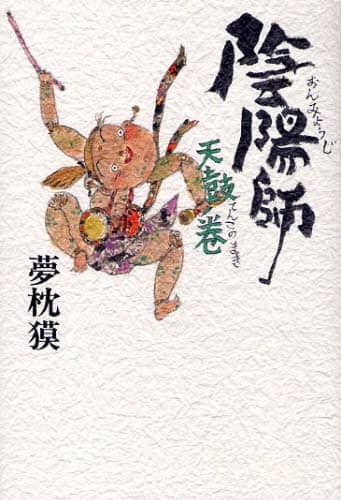 陰陽師
おんみょうじ
天鼓ノ巻
てんこのまき
夢枕獏